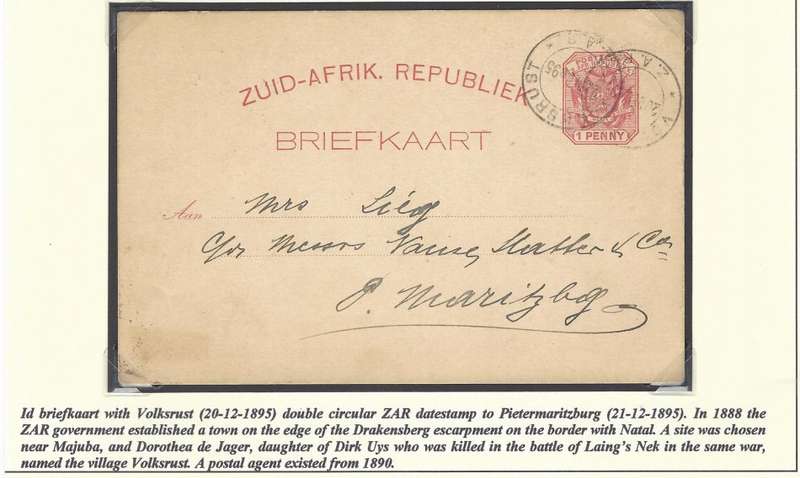 ZUID-AFRIK. REPUBLIEK
BRIEFKAART
1 PENNY
Z.A.R.
Aan Mrs Sieg
C/or Messrs Vause, Slatter & Co
P. Maritzbg
Id briefkaart with Volksrust (20-12-1895) double circular ZAR datestamp to Pietermaritzburg (21-12-1895). In 1888 the
ZAR government established a town on the edge of the Drakensberg escarpment on the border with Natal. A site was chosen
near Majuba, and Dorothea de Jager, daughter of Dirk Uys who was killed in the battle of Laing's Nek in the same war,
named the village Volksrust. A postal agent existed from 1890.